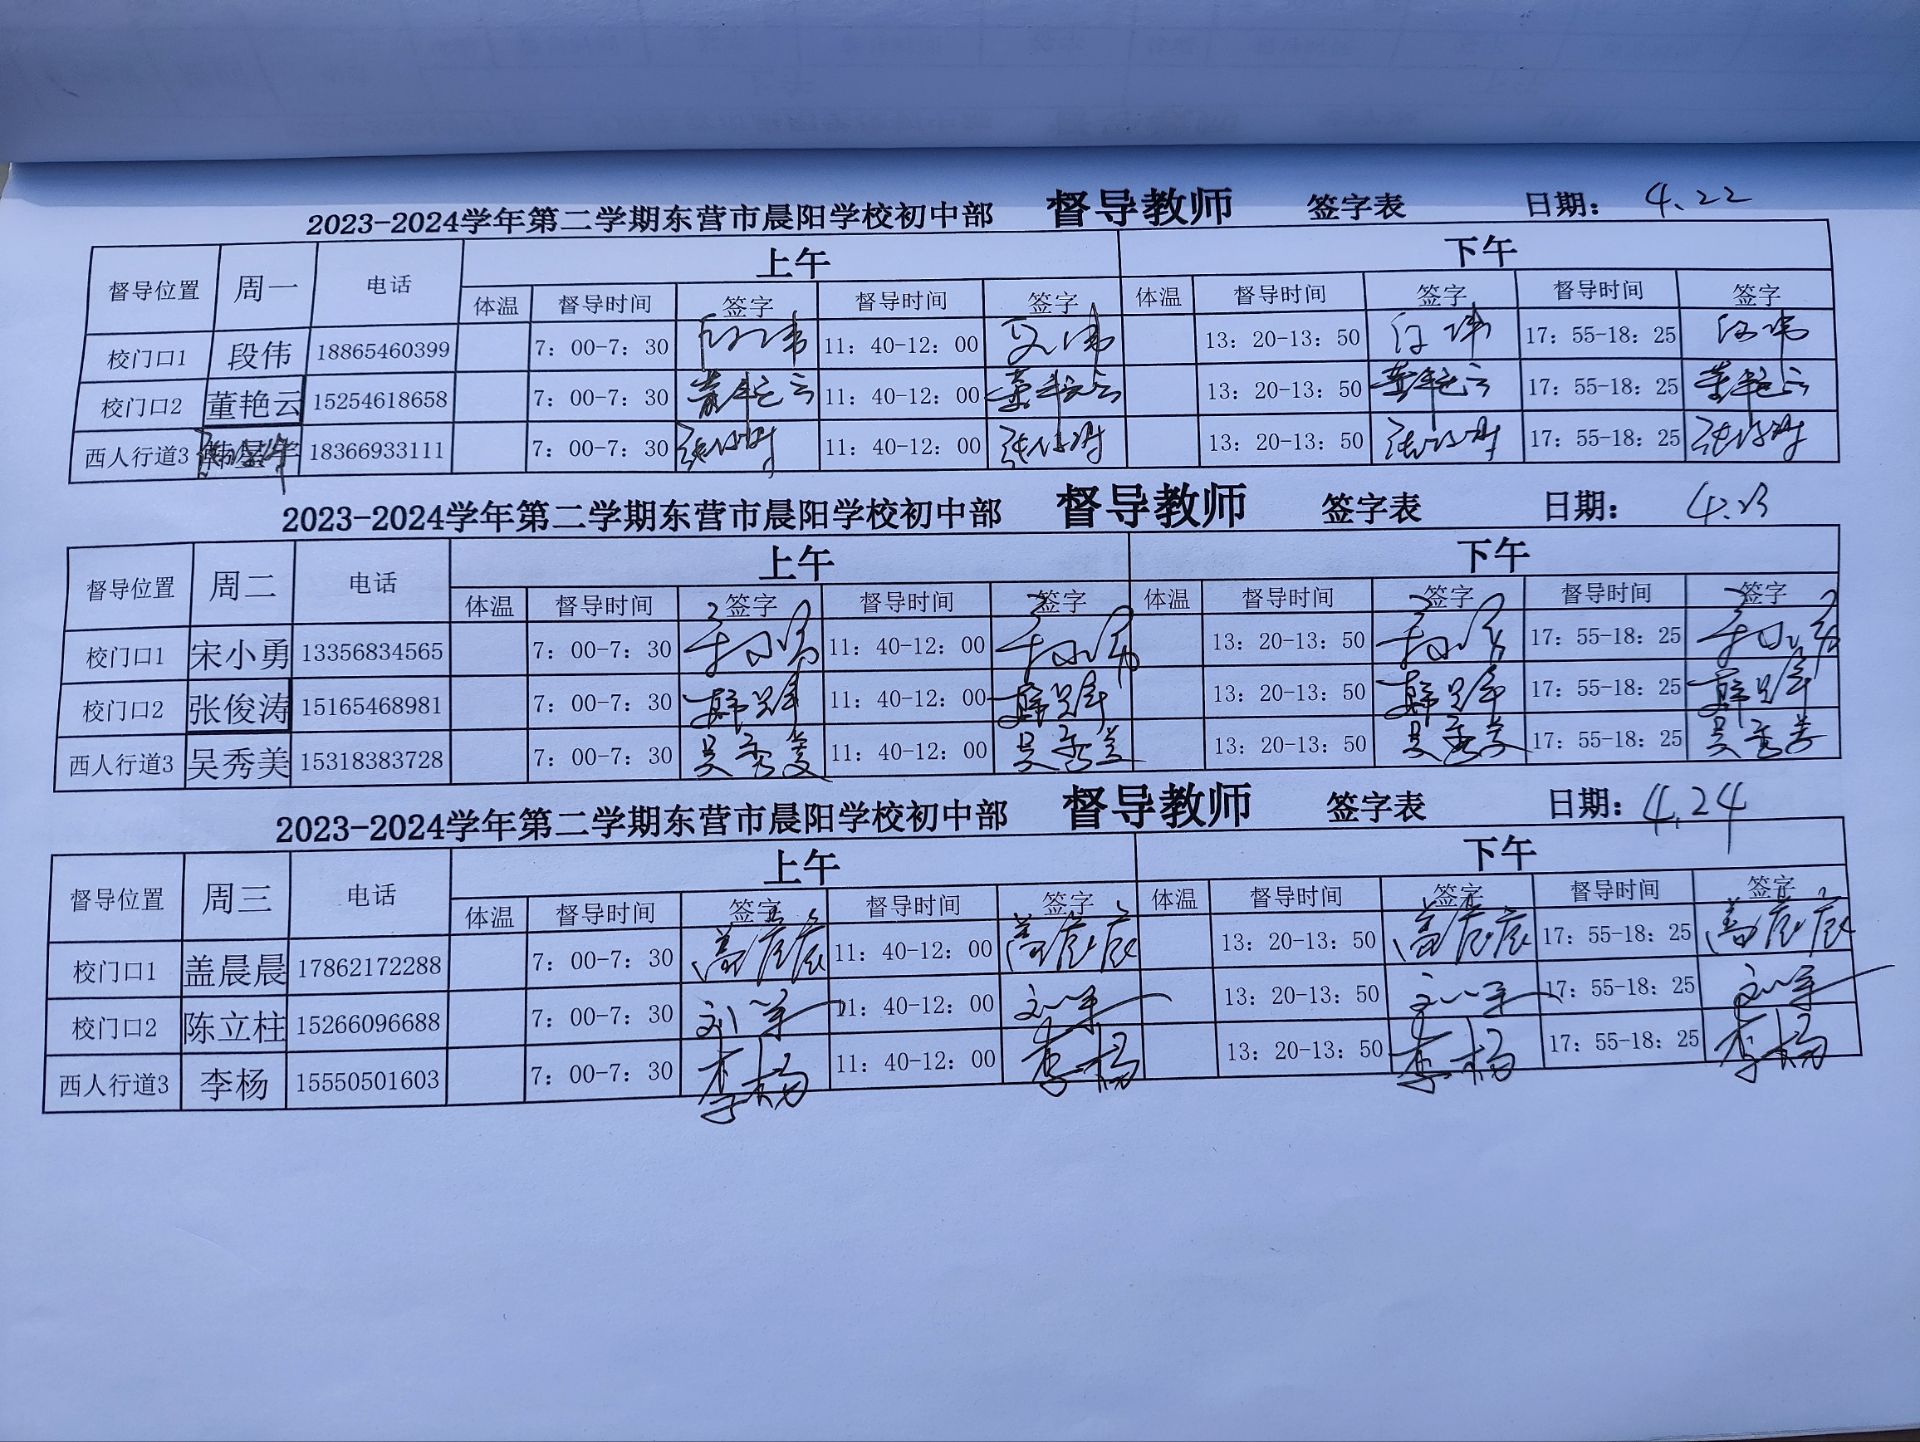 2023-2024学年第二学期东营市晨阳学校初中部 督导教师 签字表 日期: 4.22
督导位置 周一 电话 上午 下午
体温 督导时间 签字 督导时间 签字 体温 督导时间 签字 督导时间 签字
校门口1 段伟 18865460399 7: 00-7: 30 段伟 11: 40-12: 00 段伟 13: 20-13: 50 段伟 17: 55-18: 25 段伟
校门口2 董艳云 15254618658 7: 00-7: 30 董艳云 11: 40-12: 00 董艳云 13: 20-13: 50 董艳云 17: 55-18: 25 董艳云
西人行道3 18366933111 7: 00-7: 30 11: 40-12: 00 13: 20-13: 50 17: 55-18: 25
2023-2024学年第二学期东营市晨阳学校初中部 督导教师 签字表 日期: 4.23
督导位置 周二 电话 上午 下午
体温 督导时间 签字 督导时间 签字 体温 督导时间 签字 督导时间 签字
校门口1 宋小勇 13356834565 7: 00-7: 30 11: 40-12: 00 13: 20-13: 50 17: 55-18: 25
校门口2 张俊涛 15165468981 7: 00-7: 30 11: 40-12: 00 13: 20-13: 50 17: 55-18: 25
西人行道3 吴秀美 15318383728 7: 00-7: 30 吴秀美 11: 40-12: 00 吴秀美 13: 20-13: 50 吴秀美 17: 55-18: 25 吴秀美
2023-2024学年第二学期东营市晨阳学校初中部 督导教师 签字表 日期: 4.24
督导位置 周三 电话 上午 下午
体温 督导时间 签字 督导时间 签字 体温 督导时间 签字 督导时间 签字
校门口1 盖晨晨 17862172288 7: 00-7: 30 盖晨晨 11: 40-12: 00 盖晨晨 13: 20-13: 50 盖晨晨 17: 55-18: 25 盖晨晨
校门口2 陈立柱 15266096688 7: 00-7: 30 11: 40-12: 00 13: 20-13: 50 17: 55-18: 25
西人行道3 李杨 15550501603 7: 00-7: 30 李杨 11: 40-12: 00 李杨 13: 20-13: 50 李杨 17: 55-18: 25 李杨